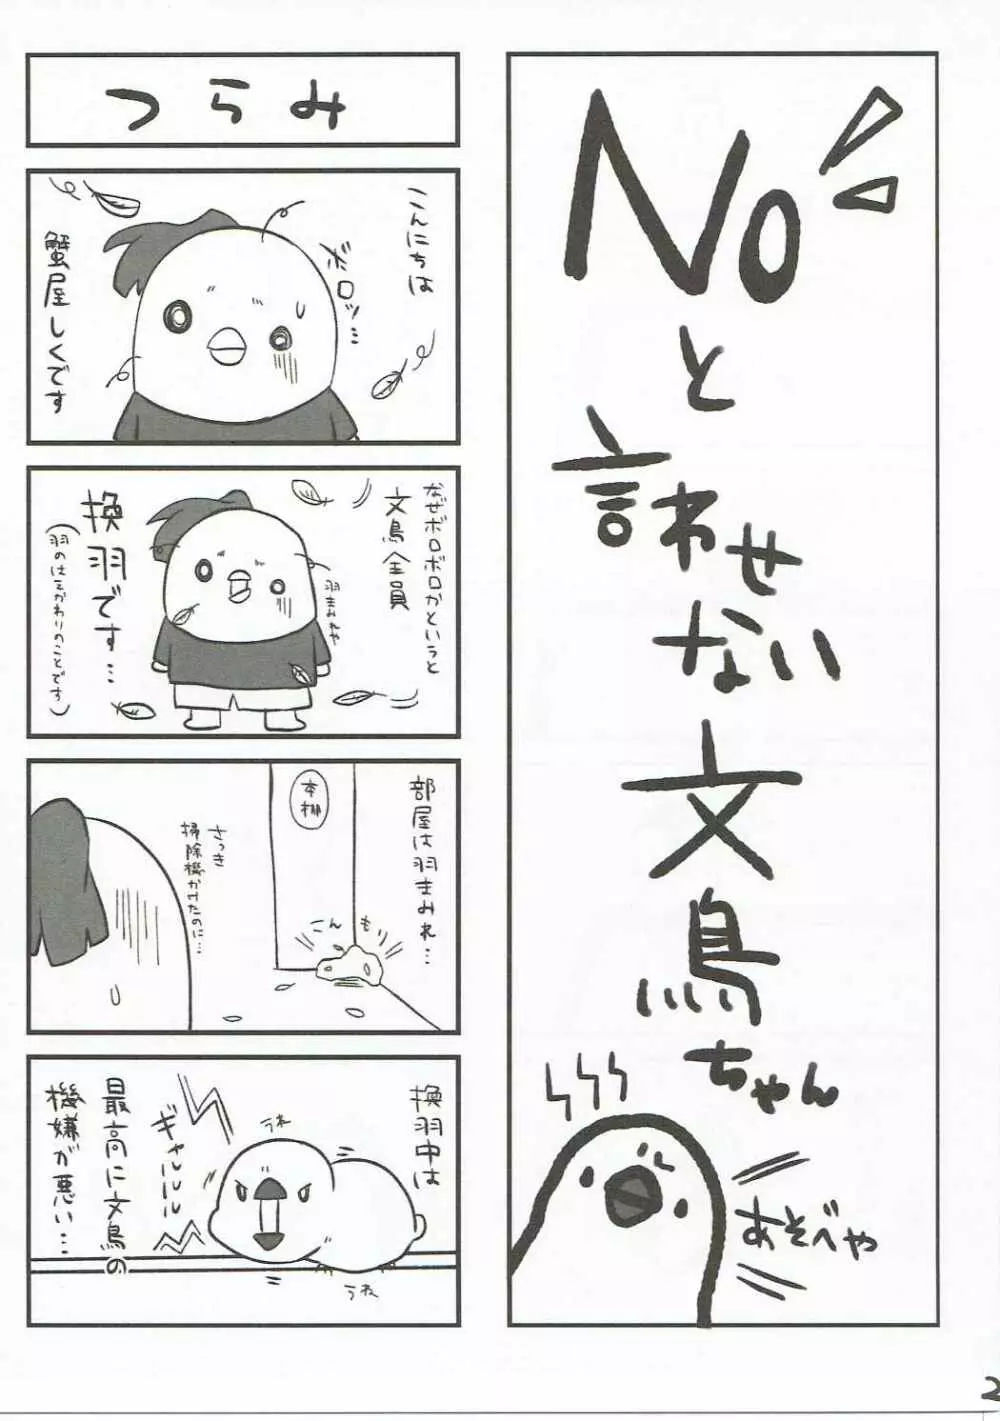 Noと
言わせない
文鳥ちゃん
あそべや
つらみ
こんにちは
ボロッ…
蟹屋しくです
なぜボロボロかというと
文鳥全員
羽まみれや
換羽です…
(羽のはえかわりのことです)
部屋は羽まみれ…
本棚
こんもり
さっき
掃除機かけたのに…
換羽中は
うね
ギャルルルル
最高に文鳥の
機嫌が悪い…
うね
2